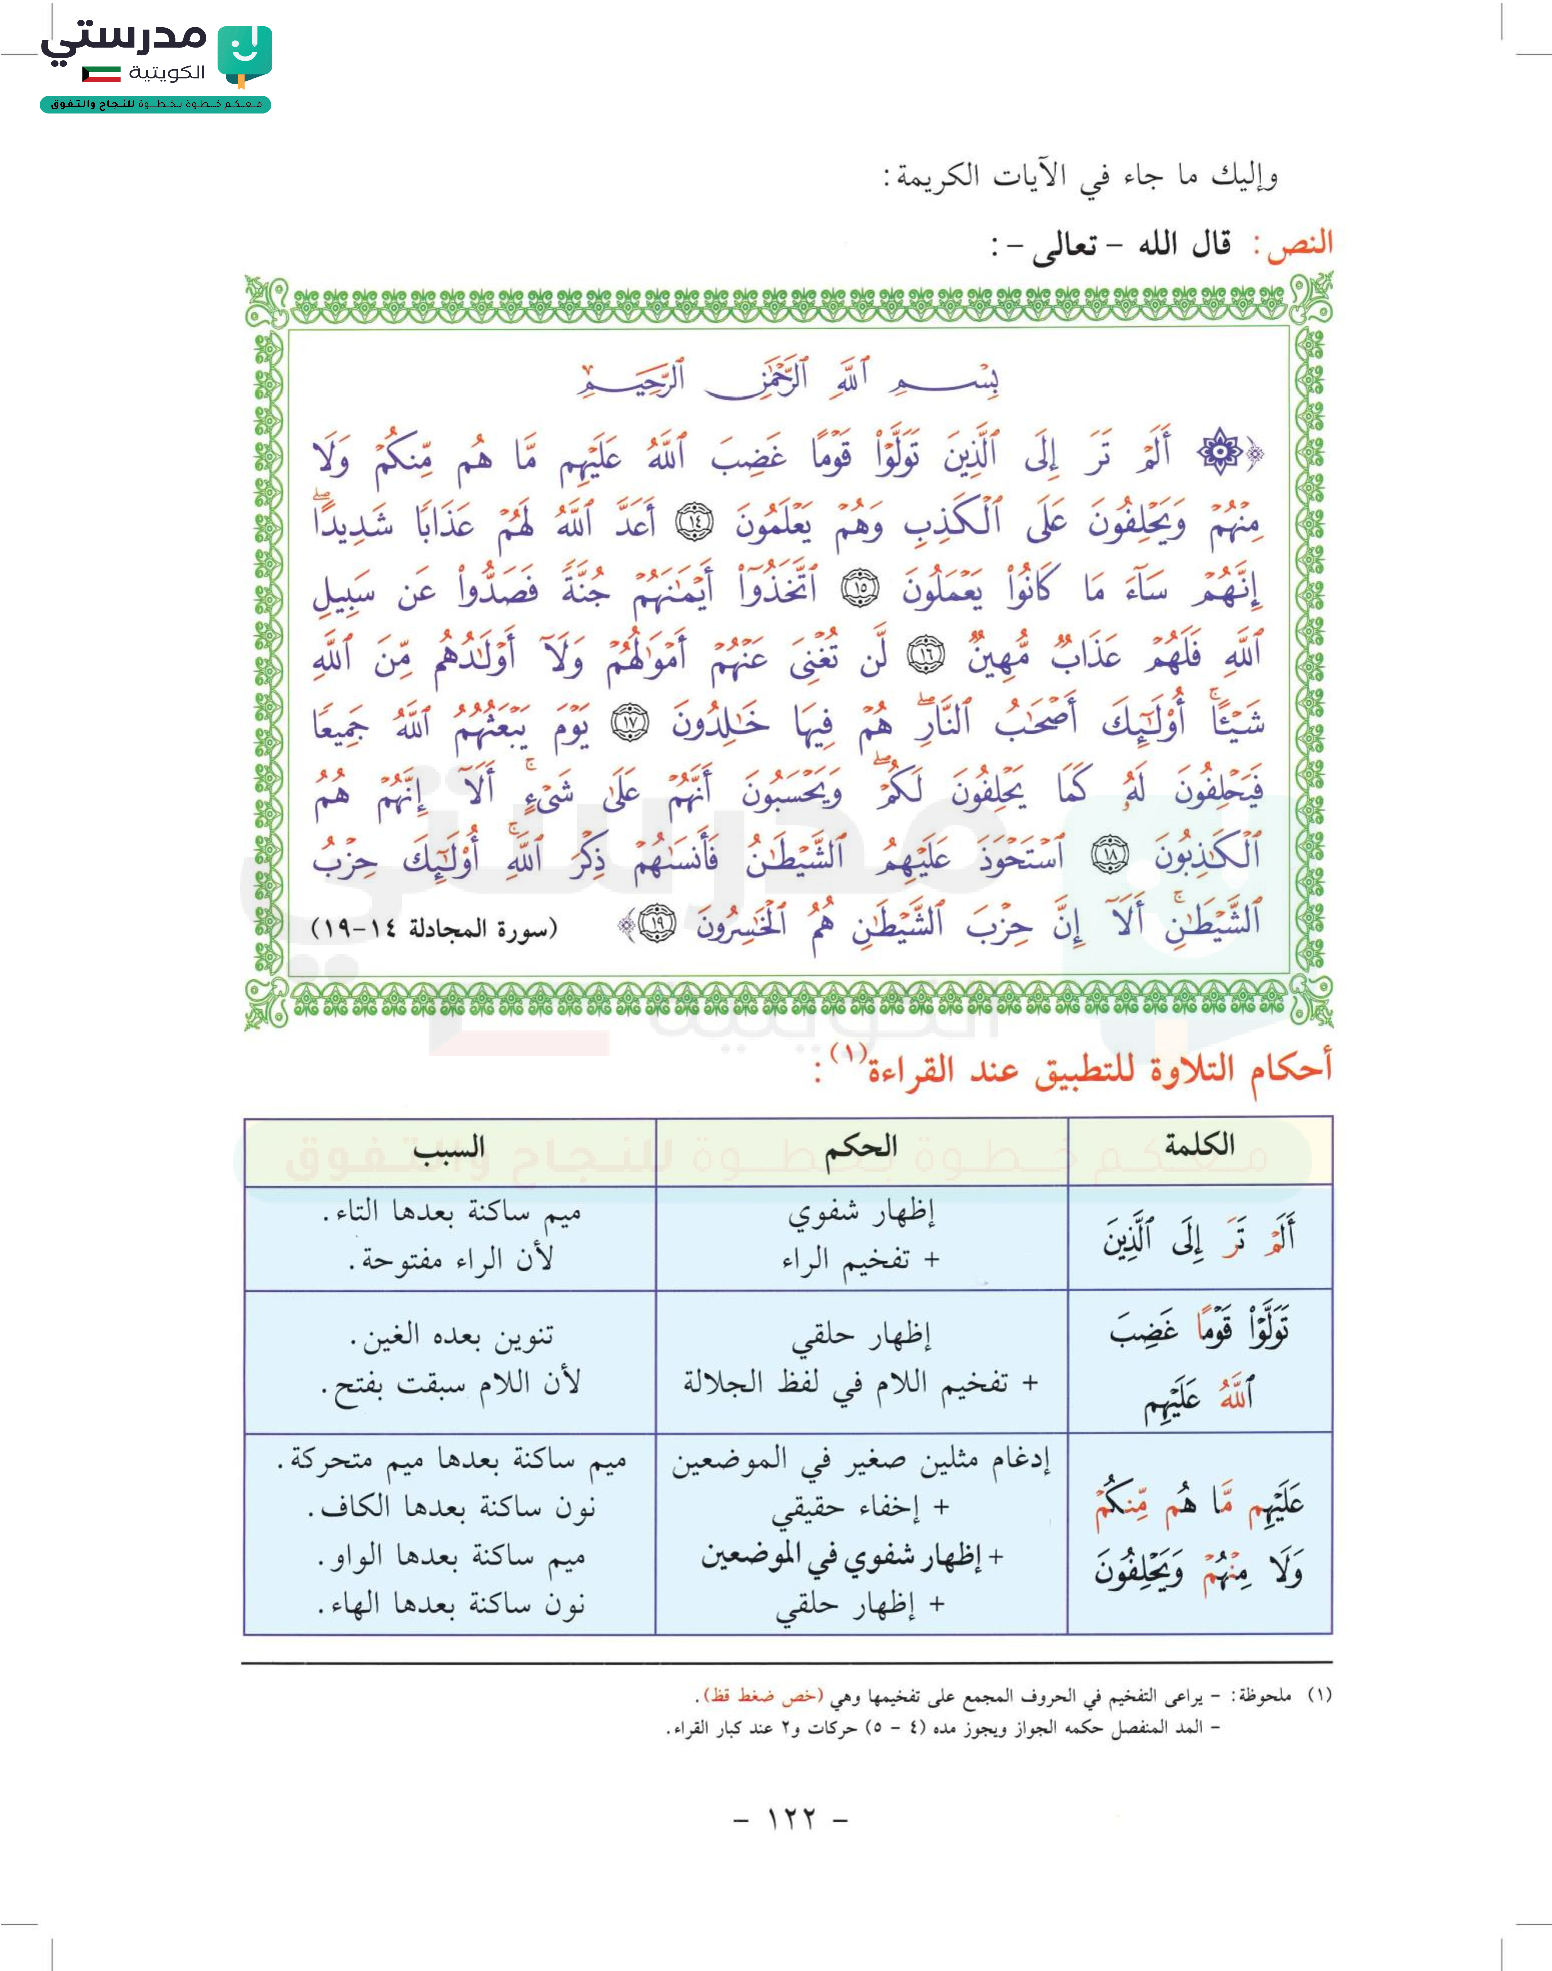 مدرستي
الكويتية
معكم خطوة بخطوة للنجاح والتفوق
وإليك ما جاء في الآيات الكريمة:
النص: قال الله - تعالى -:
بِسْمِ ٱللَّهِ ٱلرَّحْمَٰنِ ٱلرَّحِيمِ
﴿۞ أَلَمْ تَرَ إِلَى ٱلَّذِينَ تَوَلَّوْا۟ قَوْمًا غَضِبَ ٱللَّهُ عَلَيْهِم مَّا هُم مِّنكُمْ وَلَا
مِنْهُمْ وَيَحْلِفُونَ عَلَى ٱلْكَذِبِ وَهُمْ يَعْلَمُونَ ١٤ أَعَدَّ ٱللَّهُ لَهُمْ عَذَابًا شَدِيدًا ۖ
إِنَّهُمْ سَآءَ مَا كَانُوا۟ يَعْمَلُونَ ١٥ ٱتَّخَذُوٓا۟ أَيْمَٰنَهُمْ جُنَّةً فَصَدُّوا۟ عَن سَبِيلِ
ٱللَّهِ فَلَهُمْ عَذَابٌ مُّهِينٌ ١٦ لَّن تُغْنِىَ عَنْهُمْ أَمْوَٰلُهُمْ وَلَآ أَوْلَٰدُهُم مِّنَ ٱللَّهِ
شَيْـًٔا ۚ أُو۟لَٰٓئِكَ أَصْحَٰبُ ٱلنَّارِ ۖ هُمْ فِيهَا خَٰلِدُونَ ١٧ يَوْمَ يَبْعَثُهُمُ ٱللَّهُ جَمِيعًا
فَيَحْلِفُونَ لَهُۥ كَمَا يَحْلِفُونَ لَكُمْ ۖ وَيَحْسَبُونَ أَنَّهُمْ عَلَىٰ شَىْءٍ ۚ أَلَآ إِنَّهُمْ هُمُ
ٱلْكَٰذِبُونَ ١٨ ٱسْتَحْوَذَ عَلَيْهِمُ ٱلشَّيْطَٰنُ فَأَنسَىٰهُمْ ذِكْرَ ٱللَّهِ ۚ أُو۟لَٰٓئِكَ حِزْبُ
ٱلشَّيْطَٰنِ ۚ أَلَآ إِنَّ حِزْبَ ٱلشَّيْطَٰنِ هُمُ ٱلْخَٰسِرُونَ ١٩﴾ (سورة المجادلة ١٤-١٩)
أحكام التلاوة للتطبيق عند القراءة(١):
الكلمة الحكم السبب
أَلَمْ تَرَ إِلَى ٱلَّذِينَ
إظهار شفوي
+ تفخيم الراء
ميم ساكنة بعدها التاء.
لأن الراء مفتوحة.
تَوَلَّوْا۟ قَوْمًا غَضِبَ
ٱللَّهُ عَلَيْهِم
إظهار حلقي
+ تفخيم اللام في لفظ الجلالة
تنوين بعده الغين.
لأن اللام سبقت بفتح.
عَلَيْهِم مَّا هُم مِّنكُمْ
وَلَا مِنْهُمْ وَيَحْلِفُونَ
إدغام مثلين صغير في الموضعين
+ إخفاء حقيقي
+ إظهار شفوي في الموضعين
+ إظهار حلقي
ميم ساكنة بعدها ميم متحركة.
نون ساكنة بعدها الكاف.
ميم ساكنة بعدها الواو.
نون ساكنة بعدها الهاء.
(١) ملحوظة: - يراعى التفخيم في الحروف المجمع على تفخيمها وهي (خص ضغط قظ).
- المد المنفصل حكمه الجواز ويجوز مده (٤ - ٥) حركات و٢ عند كبار القراء.
- ١٢٢ -